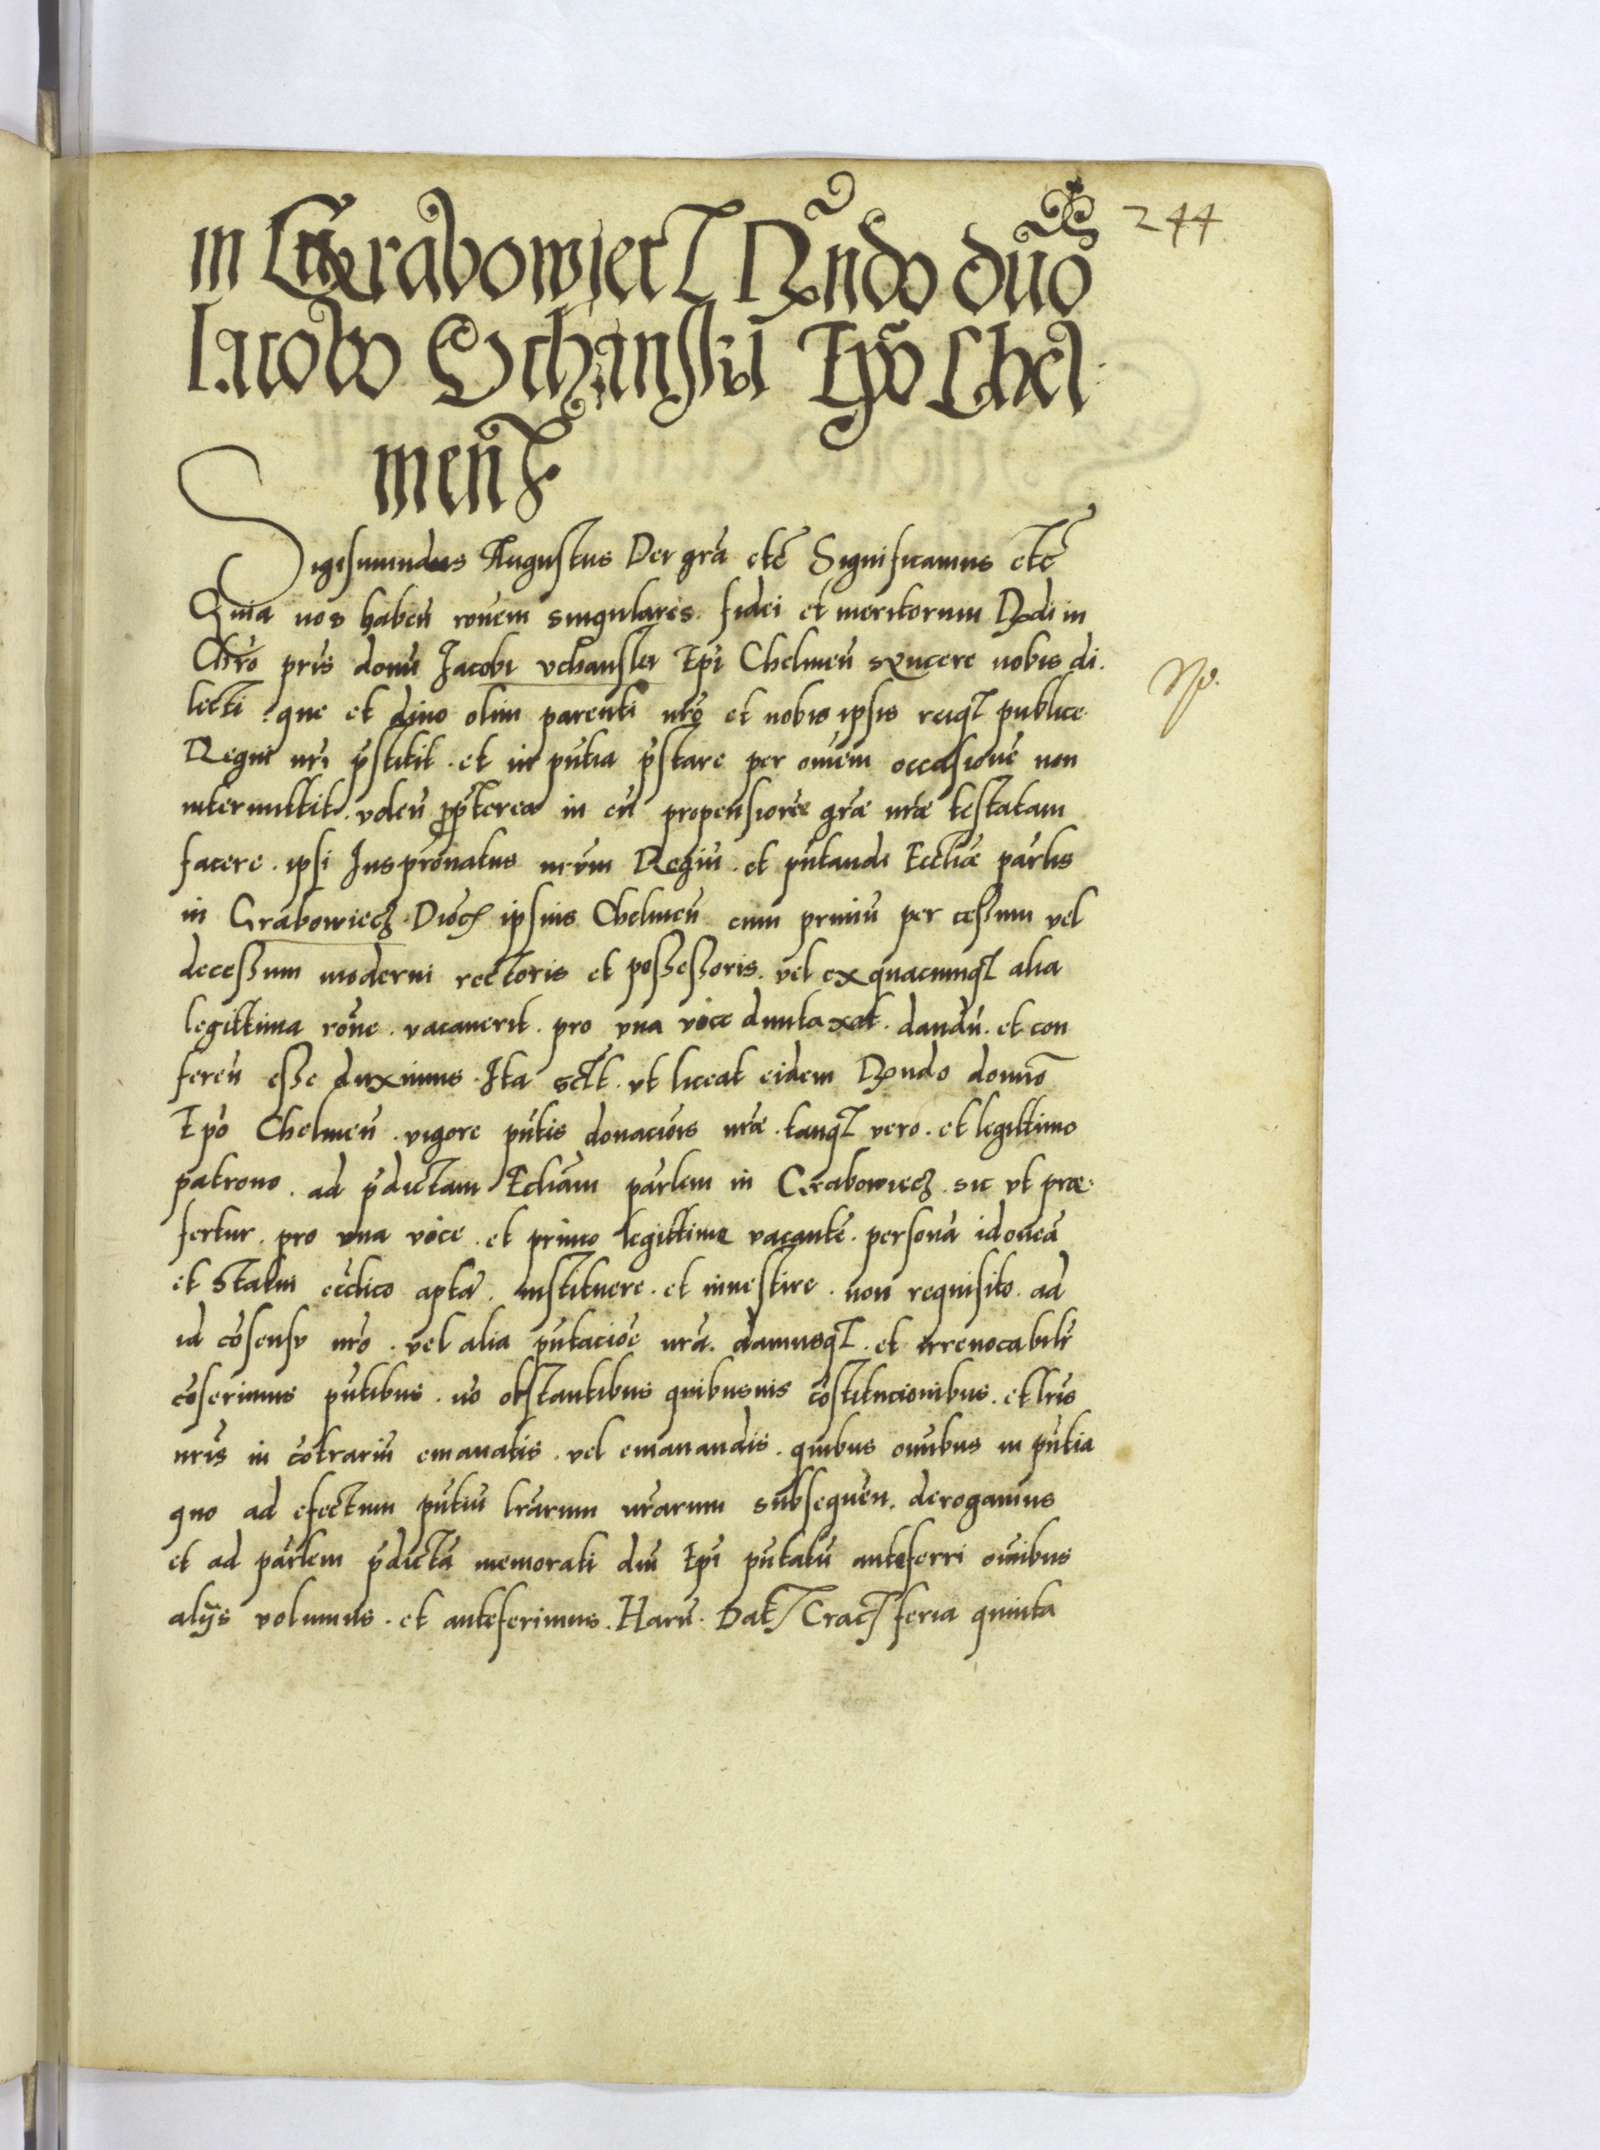 244
in Grabowiecz Rndo dno
Iacobo Vchanski Epo Chel
men̄.
Sigismundus Augustus Dei grā etc̄ Significamus etc̄
Quia nos haben̄ rōnem singularis fidei et meritorum Rndi in
Chrō pris domī Jacobi vchanskij Epī Chelmen̄ syncere nobis di
lecti. que et divo olim parenti nrō et nobis ipsis reiq̄ publice
Regni nrī p̄stitit. et in pn̄tia p̄stare per om̄em occasionē non
intermittit. volen̄ propterea in eū propensionē grāe nrāe testatam
facere. ipsi Juspr̄onatus nrūm Regiū. et pn̄tandi Eccliāe par̄lis
in Grabowiecz Dioc̄ ipsius Chelmen̄ cum primū per cessum vel
decessum moderni rectoris et possessoris. vel ex quacumq̄ alia
legittima rōne. vacaverit. pro vna vice duntaxat. dandū. et con
feren̄ esse duximus. Ita sclt. vt liceat eidem Rndo domno
Epō Chelmen̄. vigore pn̄tis donaciōis nrāe. tanq̄ vero. et legittimo
patrono. ad p̄dictam Ecliām par̄lem in Grabowiecz. sic vt prae
fertur. pro vna vice. et primo legittime vacantē. personā idoneā
et statui ecc̄lico aptā. instituere. et investire. non requisito. ad
id cōsensv nrō. vel alia pn̄taciōe nrā. damusq̄. et irrevocabilr̄
cōferimus pn̄tibus. nō obstantibus quibusuis cōstitucionibus. et lrīs
nrīs in cōtrariū emanatis. vel emanandis. quibus om̄ibus in pn̄tia
quo ad efectum pn̄tiū lrārum nrārum subsequen. derogamus
et ad par̄lem p̄dictā memorati dnī Epī pn̄tatū anteferri om̄ibus
alijs volumus. et anteferimus. Harū. Dat Crac feria quinta